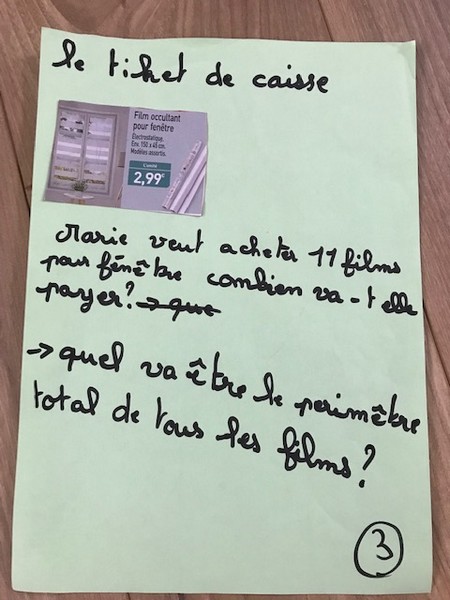 le tiket de caisse
Film occultant
pour fenêtre
Électrostatique.
Env. 150 x 45 cm.
Modèles assortis.
L'unité
2,99€
Marie veut acheter 11 films
pour fênêtre combien va-t elle
payer? → que
→ quel va être le perimêtre
total de tous les films?
3